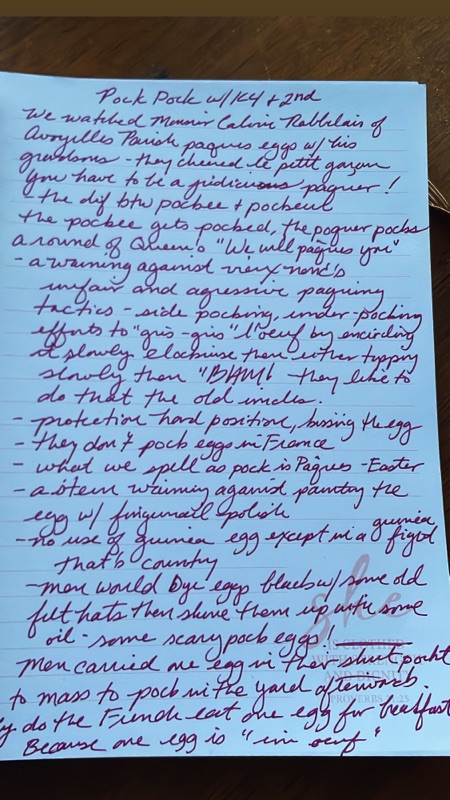 Pock Pock w/ K4 + 2nd
We watched Monsieur Calvin Rabbelais of
Avoyelles Parish paques eggs w/ his
grandsons - they cheered le petit garçon
You have to be a judicious paquer!
- the dif btw pockee + pockeur
the pockee gets pocked, the paquer pocks
a round of Queen's "We will pâques you"
- a warning against vieux nonc's
unfair and agressive paquing
tactics - side pocking, under-pocking
efforts to "gris-gris" l'oeuf by encircling
it slowly clockwise then either tapping
slowly then "BHAM! they like to
do that the old uncles.
- protection hand position, the egg
- they don't pock eggs in France
- what we spell as pock is Pâques - Easter
- a stern warning against painting the
egg w/ fingernail polish
- no use of guinea egg except in a guinea fight
that's country
- men would dye eggs black w/ some old
felt hats then shine them up with some
oil - some scary pock eggs!
Men carried one egg in their shirt pocket
to mass to pock in the yard afterwards.
do the French eat one egg for breakfast
Because one egg is "un oeuf"
she
IS CLOTHED
AND DIGNITY
PROVERBS 31:25